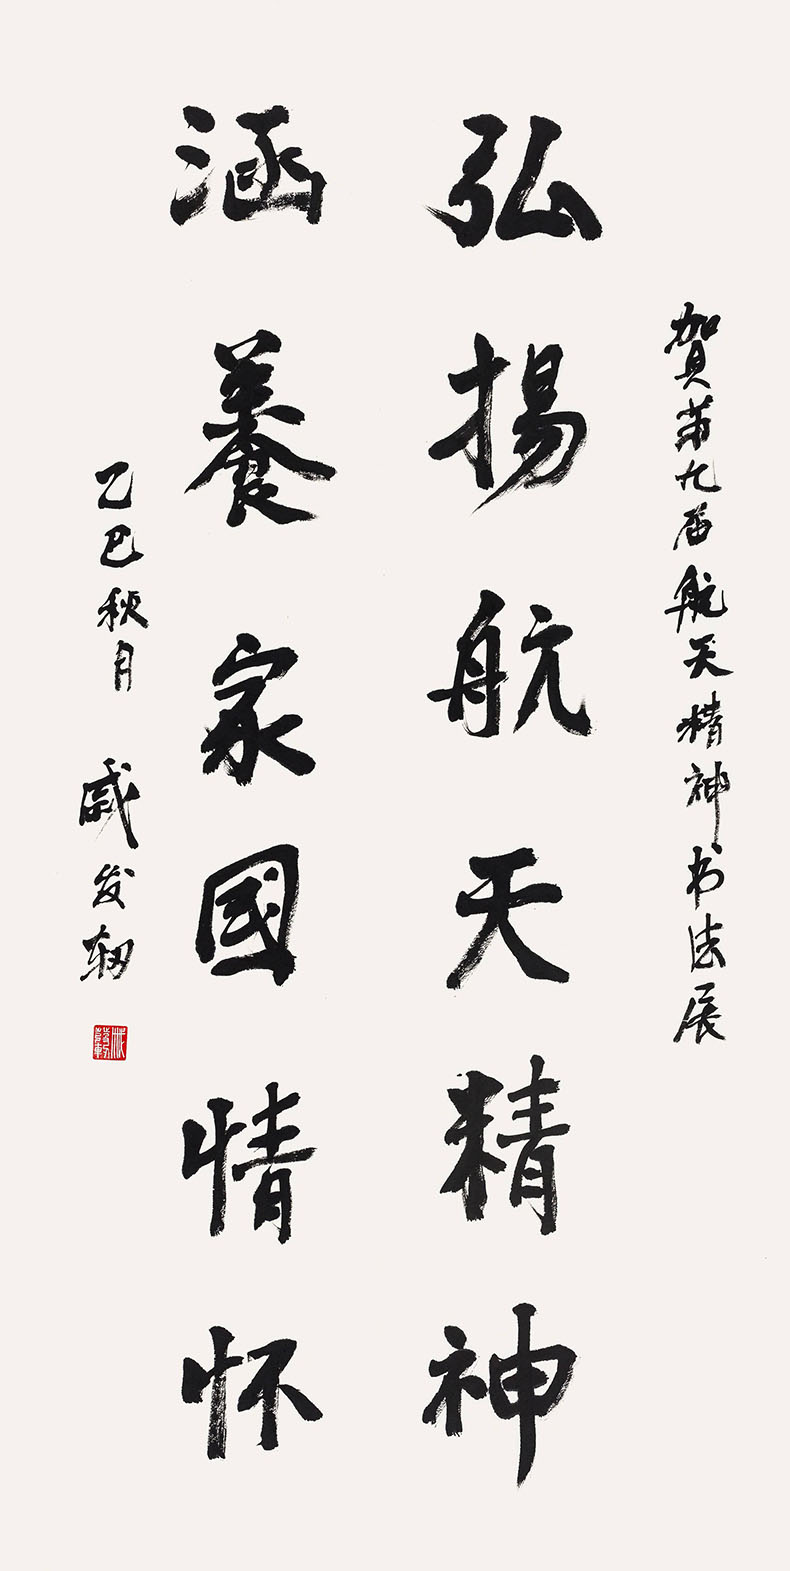 賀第九届航天精神书法展
弘揚航天精神
涵養家國情怀
乙巳秋月 戚发轫